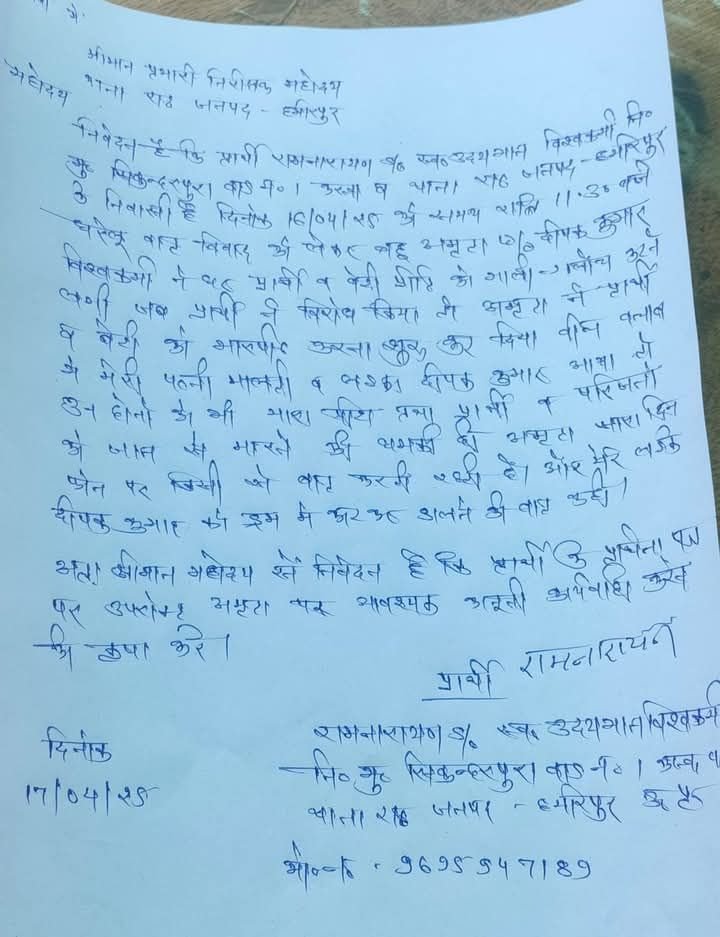 में,
श्रीमान प्रभारी निरीक्षक महोदय
थाना राठ जनपद - हमीरपुर
महोदय
निवेदन है कि प्रार्थी रामनारायण s/o स्व० उदयभान विश्वकर्मा नि०
मु० सिकन्दरपुरा वार्ड नं० 1 कस्बा व थाना राठ जनपद - हमीरपुर
के निवासी है दिनांक 16/04/25 को समय रात्रि 11:30 बजे
घरेलू वाद विवाद को लेकर बहू अमृता w/o दीपक कुमार
विश्वकर्मा ने प्रार्थी व बेटी प्रीति को गाली-गलौच करने
लगी जब प्रार्थी ने विरोध किया तो अमृता ने प्रार्थी
व बेटी को मारपीट करना शुरू कर दिया बीच बचाव
मे मेरी पत्नी मालती व लड़का दीपक कुमार आया तो
उन दोनों को भी मारा पीटा तथा प्रार्थी व परिजनों
को जान से मारने की धमकी दी अमृता सारा दिन
फोन पर किसी से बात करती रहती है। और मेरे लड़के
दीपक कुमार को ड्रम मे काट कर डालने की बात कही।
अतः श्रीमान महोदय से निवेदन है कि प्रार्थी के प्रार्थना पत्र
पर उपरोक्त अमृता पर आवश्यक कानूनी कार्यवाही करने
की कृपा करें।
प्रार्थी रामनारायन
दिनांक
17/04/25
रामनारायण s/o स्व० उदयभान विश्वकर्मा
नि० मु० सिकन्दरपुरा वार्ड नं० 1 कस्बा व
थाना राठ जनपद - हमीरपुर
मो०नं० - 9695947189